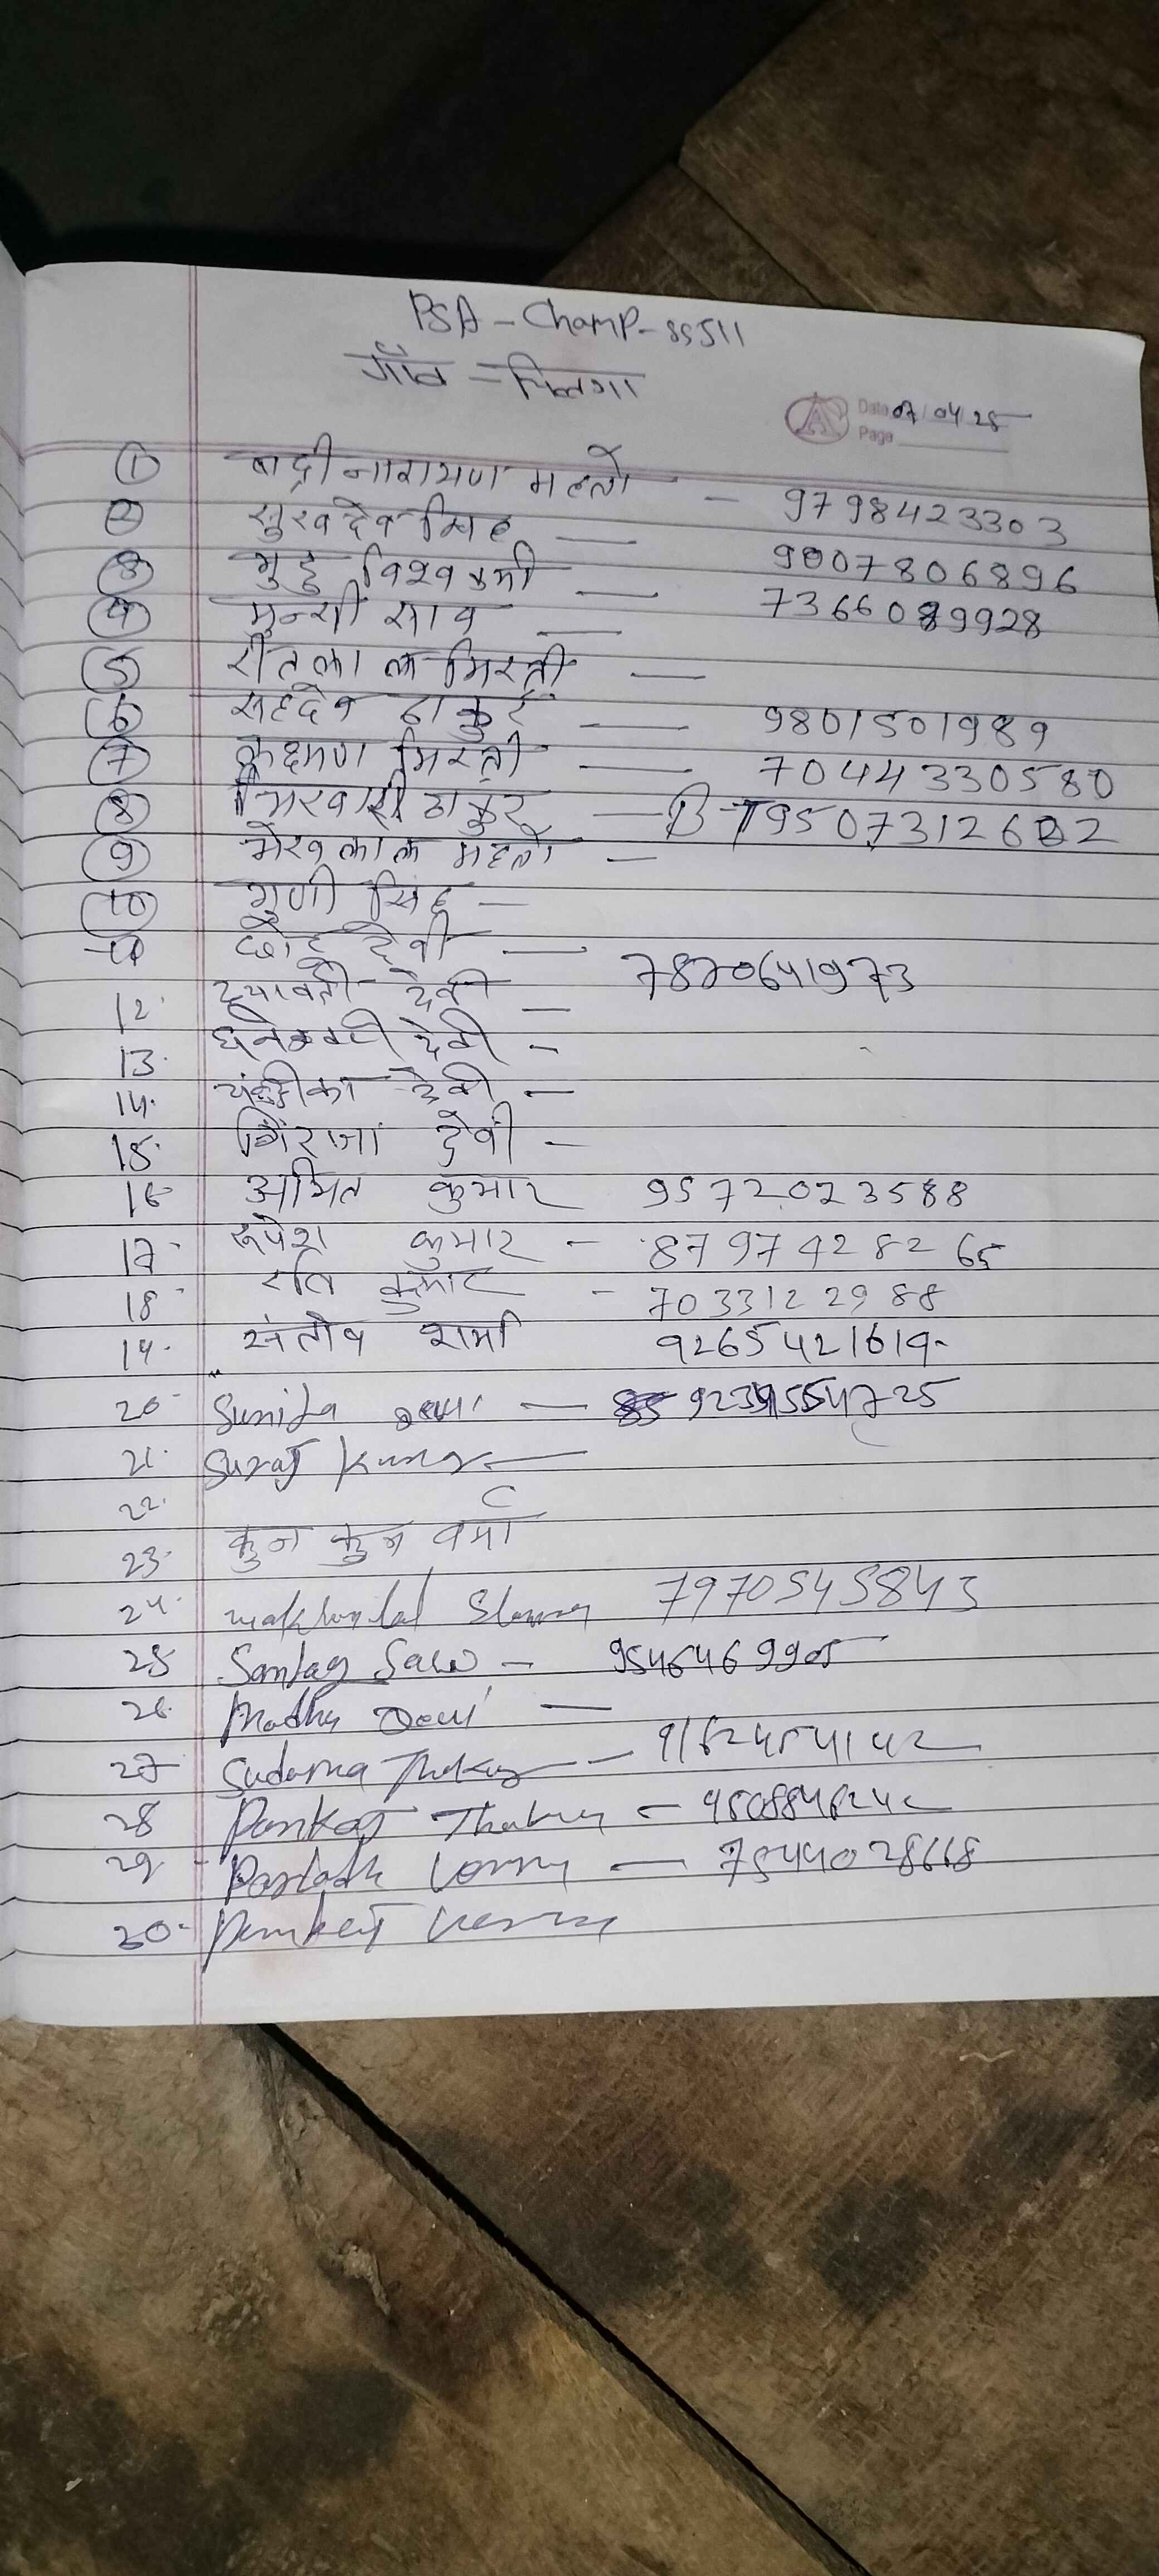 PSA - Champ - 85511
गाँव - चिलगा
Date 07/04/25
Page
1 बद्रीनारायण महतो - 9798423303
2 सुखदेव सिंह — 9007806896
3 गुड्डु विश्वकर्मा — 7366089928
4 मुन्शी साव —
5 रीतलाल मिस्त्री —
6 सहदेव ठाकुर — 9801501989
7 लक्ष्मण मिस्त्री — 7044330580
8 ठाकुर — 9507312622
9 मेखलाल महतो —
10 गुणी सिंह —
11 छोटु देवी — 7870641973
12. देवी —
13. धनेश्वरी देवी -
14. चंद्रीका देवी -
15. गिरिजा देवी -
16 अमित कुमार 9572023588
17. रूपेश कुमार - 87974282 65
18 रवि कुमार - 7033122988
19. संतोष शर्मा 9265421619.
20 Sunita Devi — 925
21. Suraj Kumar —
22.
23. कुन कुन वर्मा
24. makhanlal 7970545843
25 Santay Saw - 9546469905
26. Madhu Devi —
27 Sudama Thakur — 9162454142
28 Pankaj Thakur -
29 - Verma — 7544028668
30. Pankaj Verma